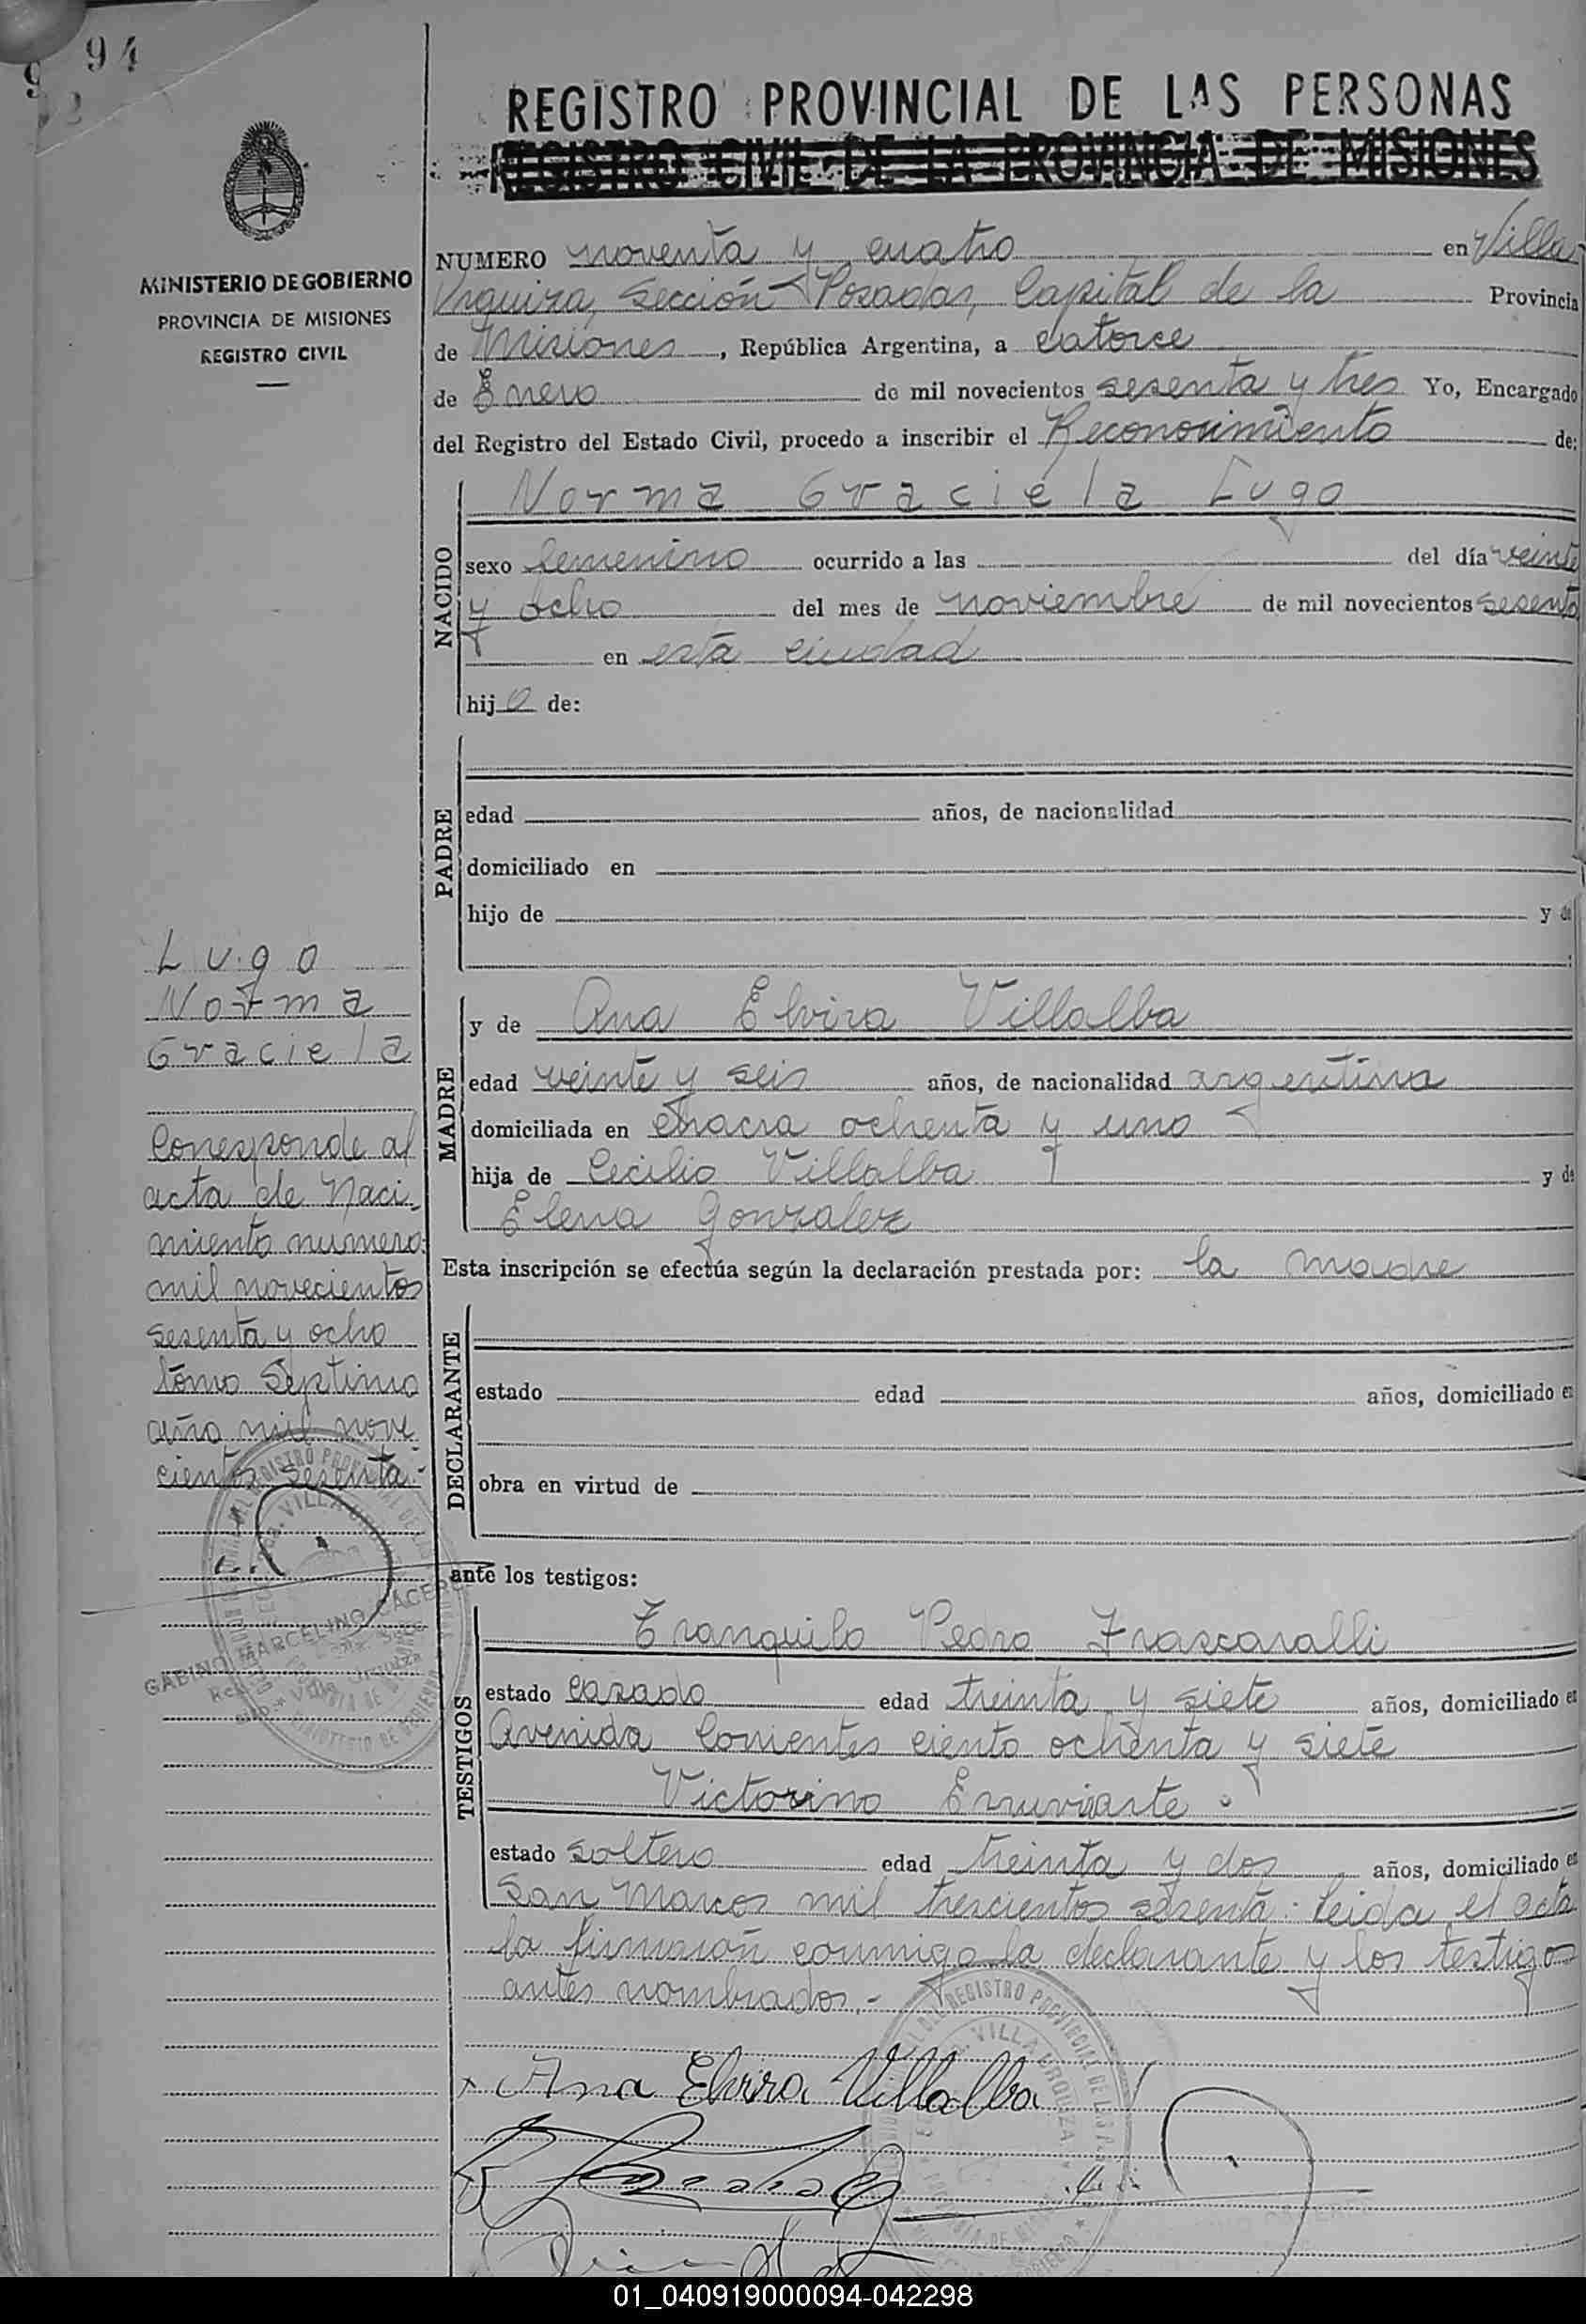 94
REGISTRO PROVINCIAL DE LAS PERSONAS
REGISTRO CIVIL DE LA PROVINCIA DE MISIONES
MINISTERIO DE GOBIERNO
PROVINCIA DE MISIONES
REGISTRO CIVIL
NUMERO noventa y cuatro en Villa
Urquiza, Sección Posadas, Capital de la Provincia
de Misiones, República Argentina, a catorce
de Enero de mil novecientos sesenta y tres Yo, Encargado
del Registro del Estado Civil, procedo a inscribir el Reconocimiento de:
NACIDO
Norma Graciela Lugo
sexo femenino ocurrido a las del día veinte
y ocho del mes de noviembre de mil novecientos sesenta
en esta ciudad
hijo de:
PADRE
edad años, de nacionalidad
domiciliado en
hijo de y de
Lugo
Norma
Graciela
Corresponde al
acta de Naci-
miento número
mil novecientos
sesenta y ocho
tomo Septimo
año mil nove
cientos sesenta.-
MADRE
y de Ana Elvira Villalba
edad veinte y seis años, de nacionalidad argentina
domiciliada en chacra ochenta y uno
hija de Cecilio Villalba y de
Elena Gonzalez
Esta inscripción se efectúa según la declaración prestada por: la madre
DECLARANTE
estado edad años, domiciliado en
obra en virtud de
ante los testigos:
GABINO MARCELINO CACERES
TESTIGOS
Tranquilo Pedro Frascaralli
estado casado edad treinta y siete años, domiciliado en
Avenida Corrientes ciento ochenta y siete
Victorino
estado soltero edad treinta y dos años, domiciliado en
San Marcos mil trescientos sesenta: Leida el acta
la firmaron conmigo la declarante y los testigos
antes nombrados.-
REGISTRO PROVINCIAL DE LAS
VILLA URQUIZA
Ana Elvira Villalba
01_040919000094-042298